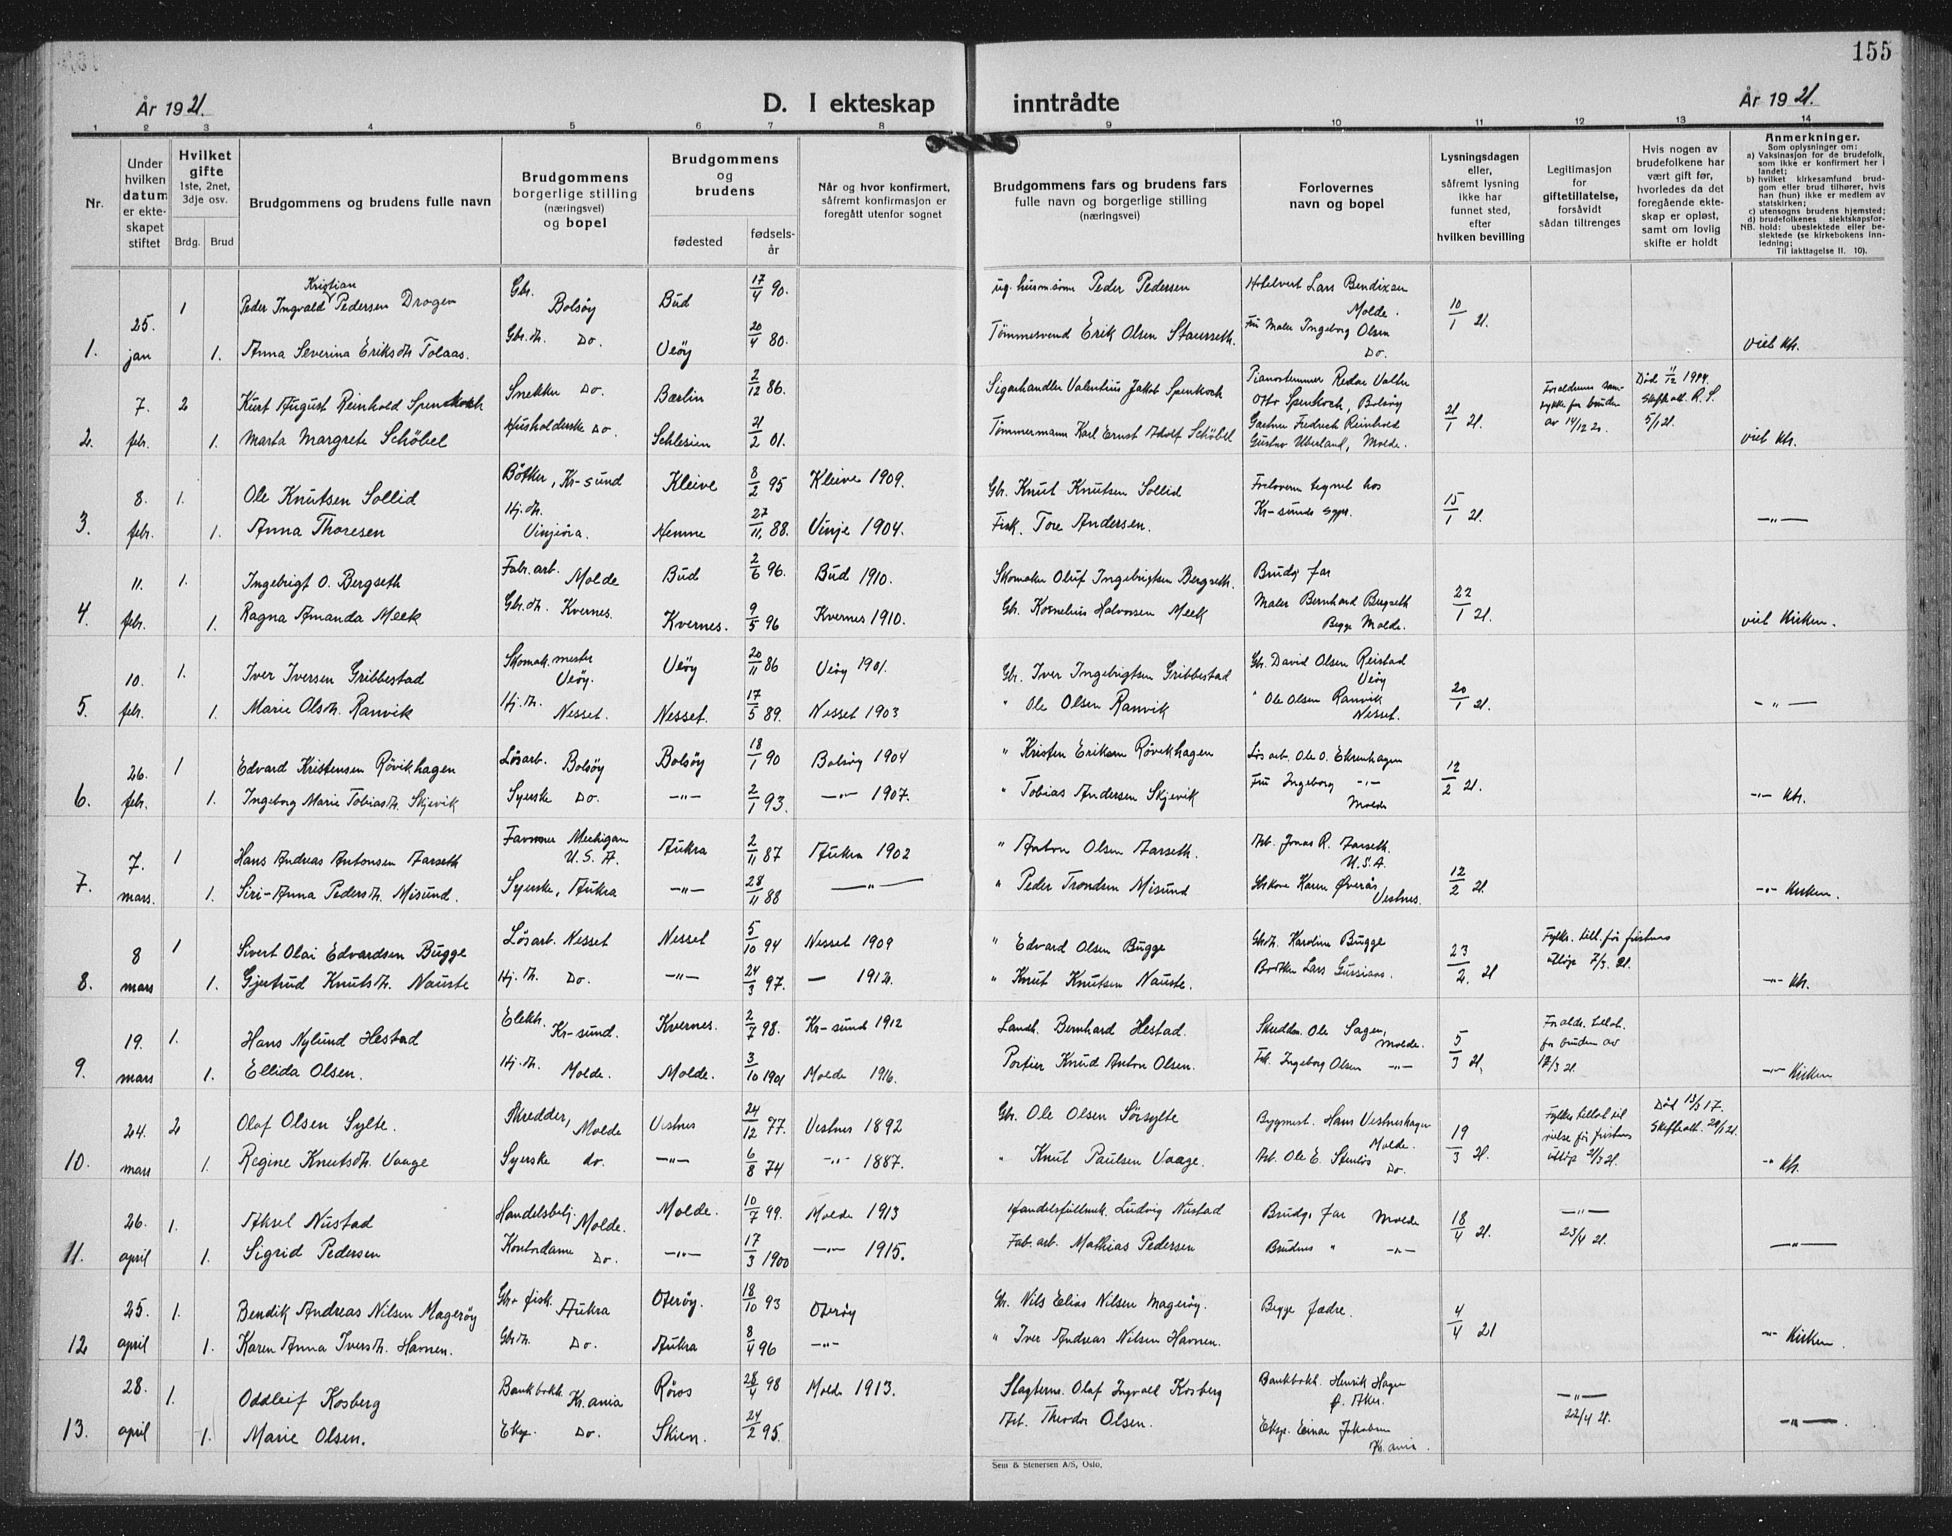 155
År 1921.
D. I ekteskap inntrådte
År 1921.
1 2 3 4 5 6 7 8 9 10 11 12 13 14
Nr.
Under hvilken datum er ekteskapet stiftet
Hvilket gifte
1ste, 2net, 3dje osv.
Brdg. Brud
Brudgommens og brudens fulle navn
Brudgommens borgerlige stilling (næringsvei) og bopel
Brudgommens og brudens
fødested
fødselsår
Når og hvor konfirmert, såfremt konfirmasjon er foregått utenfor sognet
Brudgommens fars og brudens fars fulle navn og borgerlige stilling (næringsvei)
Forlovernes navn og bopel
Lysningsdagen eller, såfremt lysning ikke har funnet sted, efter hvilken bevilling
Legitimasjon for giftetillatelse, forsåvidt sådan tiltrenges
Hvis nogen av brudefolkene har vært gift før, hvorledes da det foregående ekteskap er opløst, samt om lovlig skifte er holdt
Anmerkninger.
Som oplysninger om:
a) Vaksinasjon for de brudefolk, som ikke er konfirmert her i landet;
b) hvilket kirkesamfund brudgom eller brud tilhører, hvis han (hun) ikke er medlem av statskirken;
c) utensogns brudens hjemsted;
d) brudefolkenes slektskapsforhold: ubeslektede eller beslektede (se kirkebokens innledning;
NB. Til iakttagelse II. 10).
1. 25. jan 1 Peder Ingvald Kristian Pedersen Drogen Gbr. Bolsöy Bud 17/4 90. ug. husm.sønn Peder Pedersen Hotelvert Lars Bendixen Molde. 10/1 21.
1. Anna Severina Eriksdtr. Tolaas. Gbr.dtr. Do. Veöy 20/4 80. Tømmesvend Erik Olsen Fru Maler Ingeborg Olsen Do. viet kh.
2. 7. febr. 2 Kurt August Reinhold Spenkoch Snekker Do Berlin 2/12 86. Sigarhandler Valentius Jakob Spenkoch Pianostemmer Walter Otto Spenkoch, Bolsöy 21/1 21. Foreldrenes samtykke for bruden av 14/12 20. Død 11/12 1914. Skifteatt. R.S. 5/1 21.
1. Marta Margrete Schöbel Husholderske Do. Schlesien 21/2 01. Tømmermann Karl Ernst Adolf Schöbel Gartner Fredrich Reinhold Gustav Uberland, Molde. viet kh.
3. 8. febr. 1. Ole Knutsen Sollid Bötker, Kr-sund Kleive 8/2 95 Kleive 1909. Gbr. Knut Knutsen Sollid Forlovere tegnet hos Kr-sunds sgpr. 15/1 21.
1. Anna Thoresen Hj.dtr. Vinjeöra. Hemne 27/11 88. Vinje 1904. Fisk. Tore Andersen. —"—
4. 11. febr. 1. Ingebrigt O. Bergseth Fabr.arb. Molde Bud 2/6 96. Bud 1910. Skomaker Oluf Ingebrigtsen Bergseth. Brudg. far 22/1 21.
1. Ragna Amanda Meek Gbr.dtr. Kvernes. Kvernes. 9/5 96 Kvernes 1910. Gbr. Kornelius Halvorsen Meek Maler Bernhard Bergseth Begge Molde. viet Kirken.
5. 10. febr. 1. Iver Iversen Gribbestad Skomak.mester Veöy. Veöy 20/11 86 Veöy 1901. Gbr. Iver Ingebrigtsen Gribbestad Gbr. David Olsen Reistad Veöy 20/1 21.
1. Marie Olsdtr. Ranvik Hj.dtr. Nesset. Nesset. 17/5 89. Nesset 1903 " Ole Olsen Ranvik " Ole Olsen Ranvik Nesset. —"—
6. 26. febr. 1 Edvard Kristensen Rövikhagen Lösarb. Bolsöy Bolsöy 18/1 90 Bolsöy 1904 " Kristen Eriksen Røvikhagen Lösarb. Ole O. Ekrenhagen 12/2 21.
1. Ingeborg Marie Tobiasdtr. Skjevik Syerske Do. —"— 2/1 93. —"— 1907. " Tobias Andersen Skjevik Fru Ingeborg —"— Molde —"— Kh.
7. 7. mars. 1 Hans Andreas Antonsen Aarseth Farmer Michigan U.S.A. Aukra 2/11 87 Aukra 1902 " Anton Olsen Aarseth. Arb. Jonas R. Aarseth. U.S.A. 12/2 21.
1. Siri-Anna Pedersdtr. Misund. Syerske, Aukra —"— 28/11 88 —"— " Peder Trondsen Misund Karen Øverås, Vestnes. —"— Kirken.
8. 8 mars 1 Sivert Olai Edvardsen Bugge Lösarb. Nesset Nesset 5/10 94 Nesset 1909 " Edvard Olsen Bugge Gbrdtr. Karoline Bugge 23/2. 21 Fylk. till. før fristens utløp 7/3. 21.
1. Gjertrud Knutsdtr. Nauste Hj.dtr. Do. —"— 24/3 97. — 1912. " Knut Knutsen Nauste. Bødker Lars Gussiaas. —"— Kh.
9. 19. mars 1. Hans Nylund Hestad Elektr. Kr-sund. Kvernes. 2/7 98. Kr-sund 1912 Landh. Bernhard Hestad. Skredderm. Ole Sagen, Molde. 5/3 21. Forældr. tillat. for bruden av 12/3 21.
1. Ellida Olsen. Hj.dtr. Molde. Molde. 3/10 1901 Molde 1916. Portier Knud Anton Olsen. Frk. Ingeborg Olsen —"— —"— Kirken
10. 24. mars 2 Olaf Olsen Sylte. Skredder, Molde Vestnes 24/12 77. Vestnes 1892 Gbr. Ole Olsen Sörsylte Byggmest. Hans Vestneshagen Molde. 19/3 21. Fylkes tillat til vielse før fristens utløp 21/3 21. Död 13/3 17. Skifteatt. 28/1 21.
1. Regine Knutsdtr. Vaage Syerske do. —"— 6/8 74 —"— 1887. " Knut Paulsen Vaage. Arb. Ole E. Stenlös Do. —"— Kh.
11. 26. april 1. Aksel Nustad Handelsbetj. Molde. Molde. 10/7 99. Molde 1913 Handelsfullmek. Ludvig Nustad Brudg. far Molde 18/4 21. —"— 23/4 21.
1. Sigrid Pedersen Kontordame Do. —"— 17/3 1900 —"— 1915. Fab. arb. Mathias Pedersen Brudens " —"— —"—
12 25. april 1. Bendik Andreas Nilsen Magerøy Gbr & fisk. Aukra Oterøy. 18/10 93 Oterøy Gbr. Nils Elias Nilsen Magerøy. Begge fædre. 4/4 21
1. Karen Anna Iversdtr. Havnen. Gbrdtr. Do. Aukra 8/4 96 —"— " Iver Andreas Nilsen Havnen. —"— Kirken.
13. 28. april 1. Oddleif Kosberg Bankbokh. Kr.ania Röros 28/4 98 Molde 1913. Slagterm. Olaf Ingvall Kosberg Bankbokh. Henrik Hagen Ø. Aker. —"— 22/4 21.
1. Marie Olsen. Eksp. Do. Skien. 24/2 95. Arb. Theodor Olsen. Eksp. Einar Jakobsen Kr.ania. —"—
Sem & Stenersen A/S, Oslo.